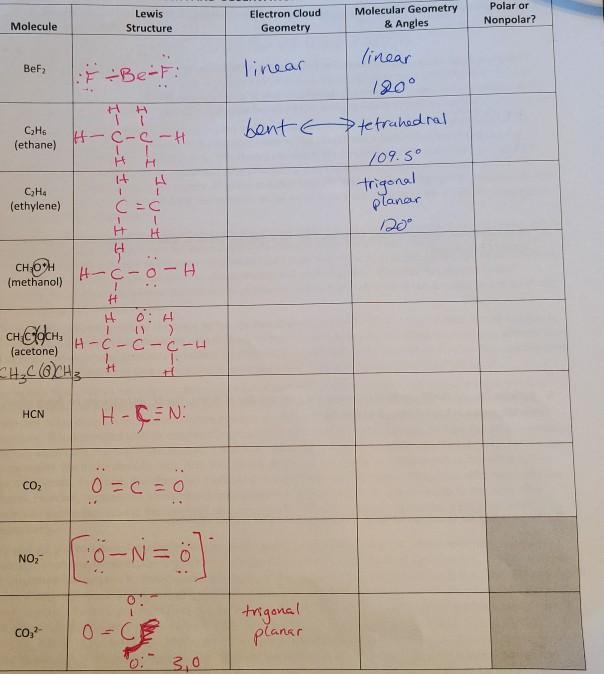 Molecule
Lewis
Structure
Electron Cloud
Geometry
Molecular Geometry
& Angles
Polar or
Nonpolar?
BeF₂
:F ÷Be-F:
linear
linear
120°
C₂H₆
(ethane)
H H
H-C-C-H
H H
bent ↔ tetrahedral
109.5°
C₂H₄
(ethylene)
H H
C=C
H H
trigonal
planar
120°
(methanol)
H
H-C-O-H
H
(acetone)
CH₃C(O)CH₃
H O: H
H-C-C-C-H
H H
HCN
H-C≡N:
CO₂
O=C=O
NO₂⁻
[:O-N=O]⁻
CO₃²⁻
O:⁻
O=C
O:⁻ 3,0
trigonal
planar